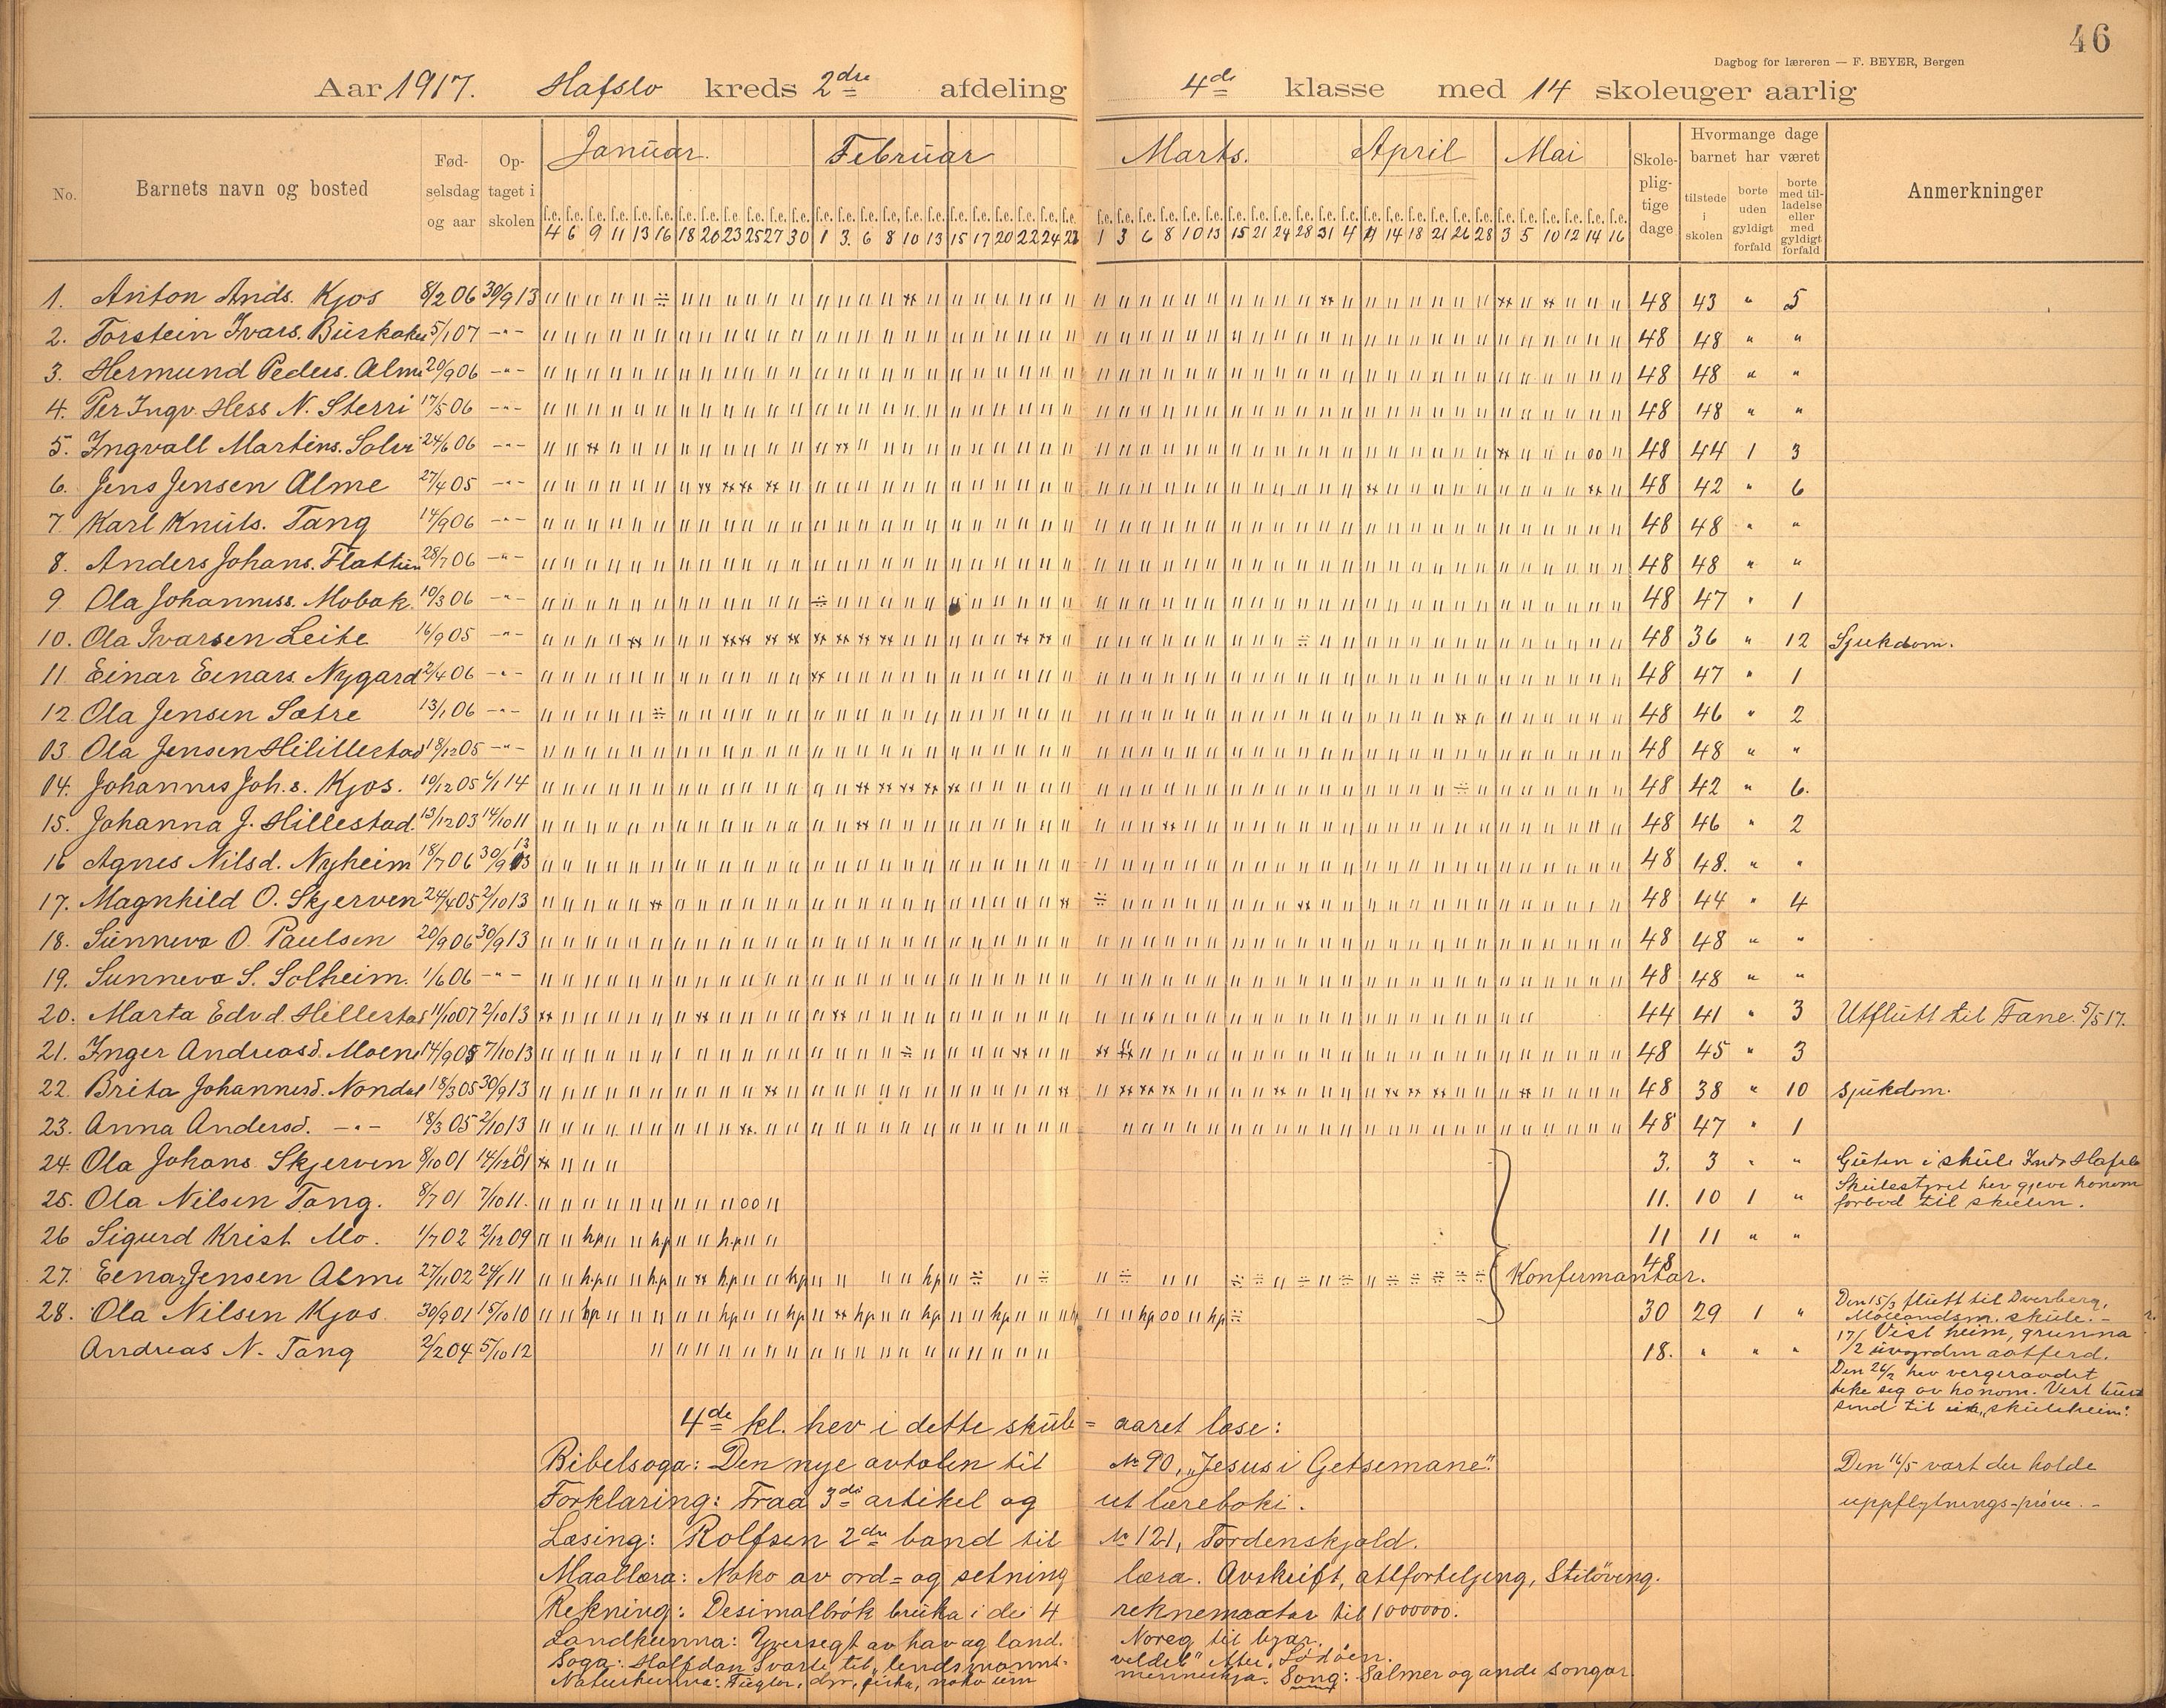 46
Dagbog for læreren — F. BEYER, Bergen
Aar 1917. Hafslo kreds 2dre afdeling 4de klasse med 14 skoleuger aarlig
No. Barnets navn og bosted Fødselsdag og aar Optaget i skolen Januar. Februar Marts. April Mai Skolepligtige dage Hvormange dage barnet har været Anmerkninger
tilstede i skolen borte uden gyldigt forfald borte med tilladelse eller med gyldigt forfald
f.e. f.e. f.e. f.e. f.e. f.e. f.e. f.e. f.e. f.e. f.e. f.e. f.e. f.e. f.e. f.e. f.e. f.e. f.e. f.e. f.e. f.e. f.e. f.e.
4 6 9 11 13 16 18 20 23 25 27 30 1 3. 6 8 10 13 15 17 20 22 24 27 1 3 6 8 10 13 15 21 24 28 31 4 11 14 18 21 26 28 3 5 10 12 14 16
1. Anton Ands. Kjos 8/2 06 30/9 13 48 43 " 5
2. Torstein Ivars. 5/1 07 -"- 48 48 " "
3. Hermund Peders. Alme 20/9 06 -"- 48 48 " "
4. Per Ingv. Hess N. Sterri 17/5 06 -"- 48 48 " "
5. Ingvall Martins. 24/6 06 -"- 48 44 1 3
6. Jens Jensen Alme 27/4 05 -"- 48 42 " 6
7 Karl Knuts. Tang 14/9 06 -"- 48 48 " "
8. Anders Johans. 28/7 06 -"- 48 48 " "
9 Ola Johanness. Mobak. 10/3 06 -"- 48 47 " 1
10. Ola Ivarsen Leite 16/9 05 -"- 48 36 " 12 Sjukdom.
11 Einar Einars. Nygard 2/4 06 -"- 48 47 " 1
12 Ola Jensen Sætre 13/1 06 -"- 48 46 " 2
13. Ola Jensen Hilillestad 18/12 05 -"- 48 48 " "
14. Johannes Joh.s. Kjos. 10/12 05 14 48 42 " 6.
15. Johanna J. Hillestad. 13/12 03 14/10 11 48 46 " 2
16 Agnes Nilsd. Nyheim 18/7 06 30/9 13 48 48. " "
17. Magnhild O. Skjerven 24/4 05 2/10 13 48 44 " 4
18. Sunneva O. Paulsen 20/9 06 30/9 13 48 48 " "
19. Sunneva S. Solheim. 1/6 06 -"- 48 48 " "
20. Marta Edv.d. Hillestad 11/10 07 2/10 13 44 41 " 3 Utflutt til Fane. 5/5 17.
21. Inger Andreasd. Moen 14/9 05 7/10 13 48 45 " 3
22. Brita Johannesd. Nondal 18/3 05 30/9 13 48 38 " 10 sjukdom.
23. Anna Andersd. -"- 18/3 05 2/10 13 48 47 " 1
24. Ola Johans. Skjerven 8/10 01 3. 3 " " Guten i skule Hafslo
25. Ola Nilsen Tang. 8/7 01 7/10 11. 11. 10 1 " Skulestyret hev gjeve honom
forbod til skulen.
26 Sigurd Krist. Mo. 1/7 02 2/12 09 11 11 " "
27. Einar Jensen Alme 27/11 02 24/1 11 Konfirmantar. 48
28. Ola Nilsen Kjos 30/9 01 15/10 10 30 29 1 " Den 15/3 flutt til Dverberg,
skule. -
Andreas N. Tang 2/2 04 5/10 12 18. " " " 17/2 Vist heim, grunna
aatferd.
Den 26/2 hev vergeraadet
teke seg av honom. Vert
send til skuleheim.
4de kl. hev i dette skule= aaret lese:
Bibelsoga: Den nye avtalen til № 90, „Jesus i Getsemane".
Forklaring: Fraa 3die artikel og ut læreboki.
Læsing: Rolfsen 2dre band til № 121, Tordenskjold.
Maallæra: Noko av ord= og setning læra. Avskrift, attforteljing, Stiløving.
Rekning: Desimalbrøk bruka i dei 4 reknemaatar til 1000000.
Landkunna: Yversegt av hav og land. Noreg til byar.
Soga: Halfdan Svarte til „lendsmanns- veldet"
Naturkunna: Fuglar, dyr, fiska, noko um menneskja. Song: Salmer og andre songar.
Den 16/5 vart der holde
uppflytnings-prøve. -